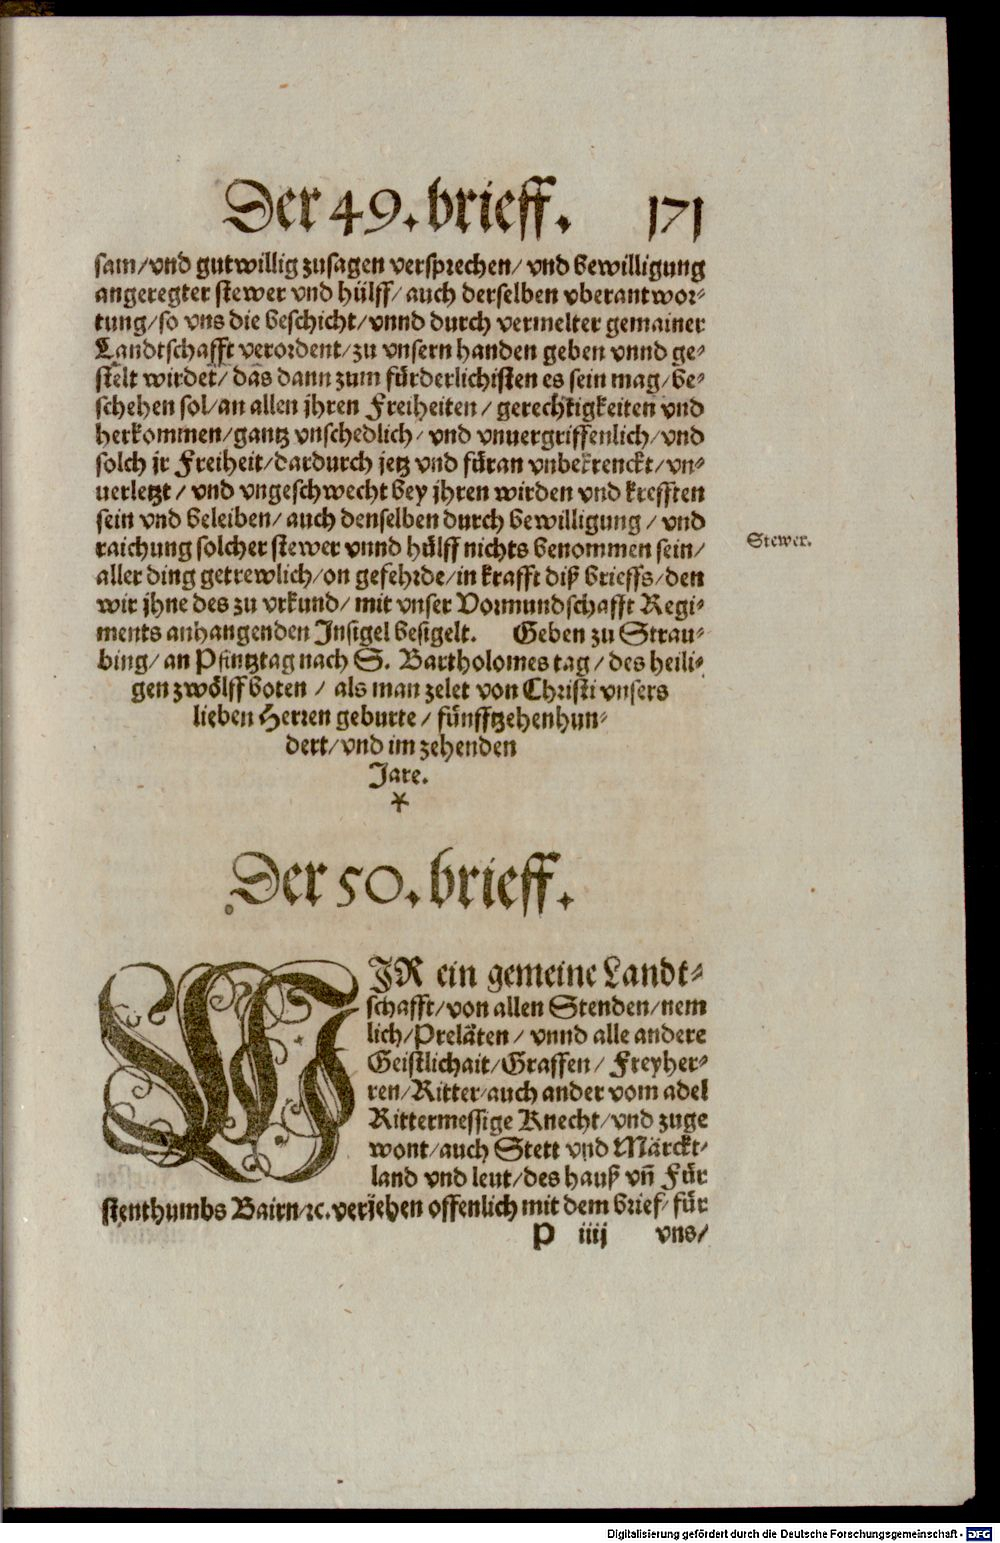 Der 49. brieff. 171
sam/vnd gutwillig zusagen versprechen/ vnd bewilligung
angeregter stewer vnd hülff/ auch derselben vberantwor⸗
tung/so vns die beschicht/vnnd durch vermelter gemainer
Landtschafft verordent/zu vnsern handen geben vnnd ge⸗
stelt wirdet/ das dann zum fürderlichisten es sein mag/be⸗
schehen sol/an allen jhren Freiheiten/ gerechtigkeiten vnd
herkommen/gantz vnschedlich/ vnd vnuergriffenlich/vnd
solch jr Freiheit/dardurch jetz vnd füran vnbekrenckt/vn⸗
uerletzt/ vnd vngeschwecht bey jhren wirden vnd krefften
sein vnd beleiben/ auch denselben durch bewilligung/ vnd
raichung solcher stewer vnnd hülff nichts benommen sein/
Stewer.
aller ding getrewlich/on gefehrde/in krafft diß brieffs/den
wir jhne des zu vrkund/ mit vnser Vormundschafft Regi⸗
ments anhangenden Insigel besigelt. Geben zu Strau⸗
bing/ an Pfintztag nach S. Bartholomes tag/ des heili⸗
gen zwölffboten/ als man zelet von Christi vnsers
lieben Herren geburte/ fünfftzehenhun⸗
dert/vnd im zehenden
Jare.
*
Der 50. brieff.
WIR ein gemeine Landt⸗
schafft/von allen Stenden/nem
lich/Preläten/ vnnd alle andere
Geistlichait/Graffen/ Freyher⸗
ren/Ritter/auch ander vom adel
Rittermessige Knecht/vnd zuge
wont/auch Stett vnd Märckt⸗
land vnd leut/des hauß vñ Für
stenthumbs Bairn/ꝛc. verjehen offenlich mit dem brief/ für
P iiij vns/
Digitalisierung gefördert durch die Deutsche Forschungsgemeinschaft - DFG